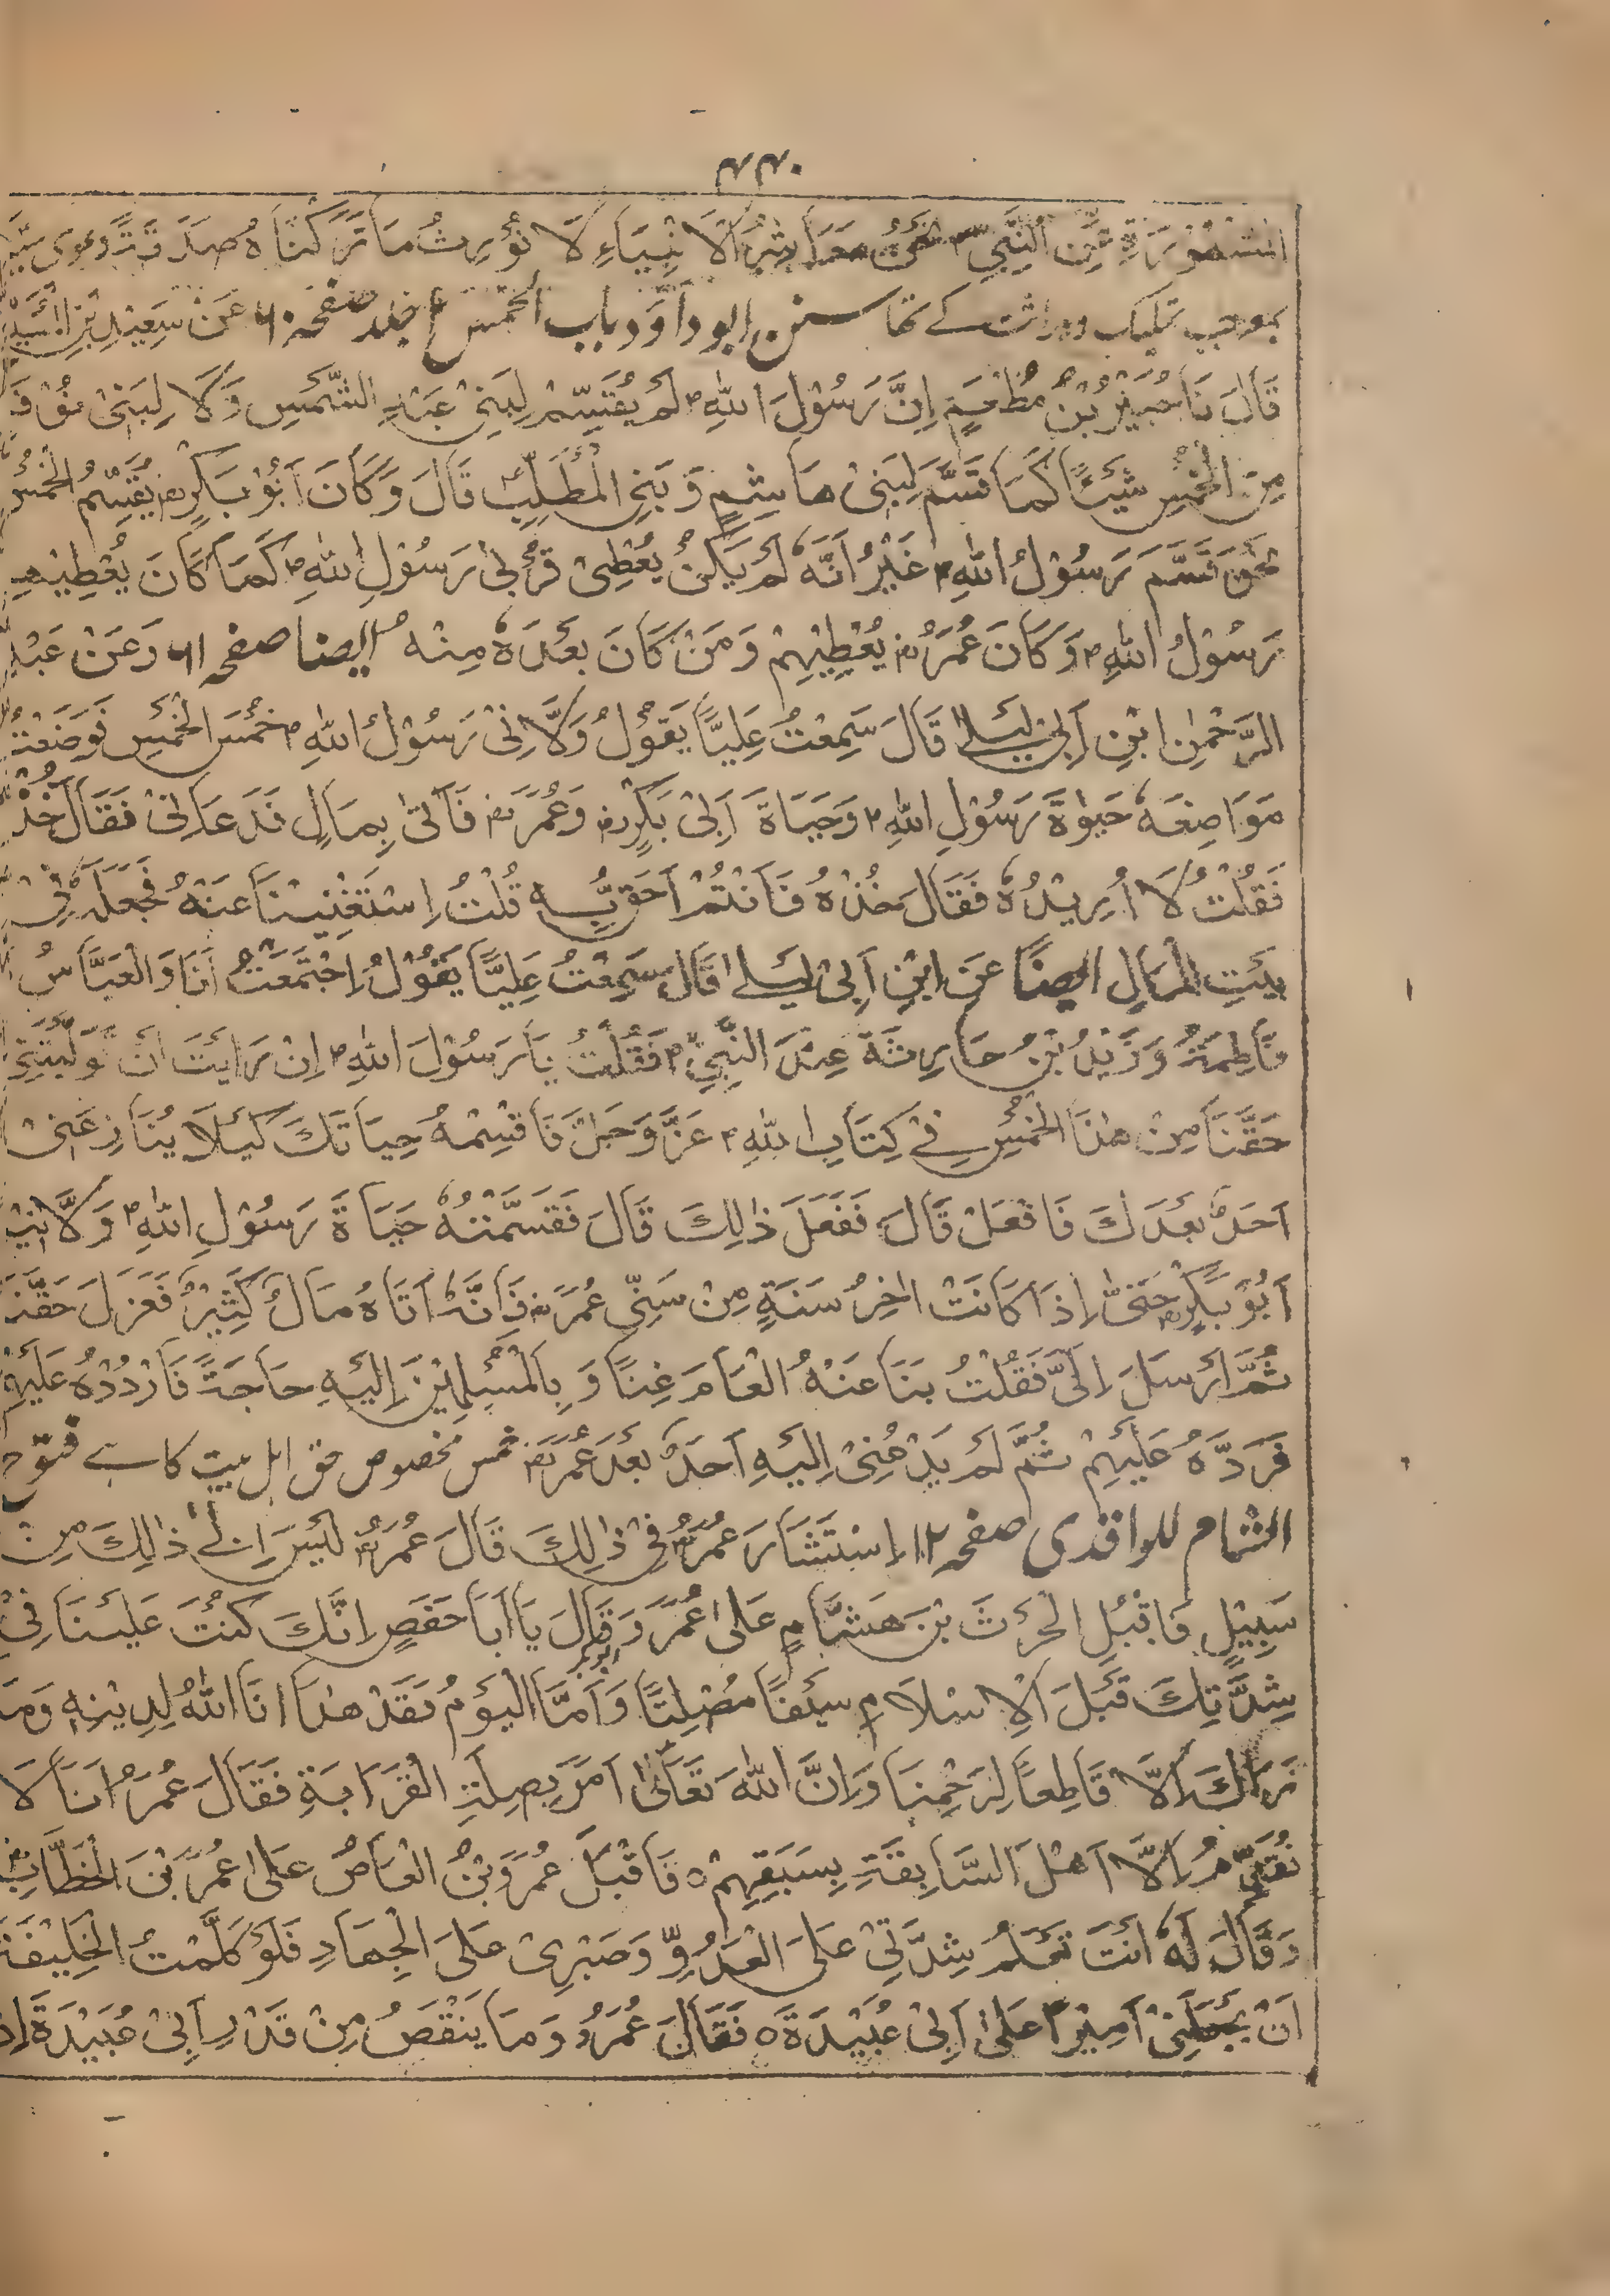 ۴۴۰
المشهورة عن النبي نَحْنُ مَعَاشِرُ الْاَنْبِيَاءِ لَا نُوْرِثُ مَا تَرَكْنَاهُ صَدَقَةً دعوی
بموجب تملیک وراثت کے تھا سنن ابو داؤد باب الخمس جلد صفحہ ۶۰ عَنْ سَعِيْدِ بْنِ
قَالَ نَا جُبَيْرُ بْنُ مُطْعِمٍ اِنَّ رَسُوْلَ اللهِ ؐ لَمْ يُقَسِّمْ لِبَنِيْ عَبْدِ الشَّمْسِ وَلَا لِبَنِيْ نَوْفَ
مِنَ الْخُمُسِ شَيْئًا كَمَا قَسَّمَ لِبَنِيْ هَاشِمٍ وَ بَنِي الْمُطَّلِبِ قَالَ وَكَانَ اَبُوْ بَكْرٍ يُقَسِّمُ الْخُمُسَ
نَحْوَ قَسَّمَ رَسُوْلُ اللهِ ؐ غَيْرُ اَنَّهٗ لَمْ يَكُنْ يُعْطِىْ قُرْبٰى رَسُوْلِ اللهِ ؐ كَمَا كَانَ يُعْطِيْهِمْ
رَسُوْلُ اللهِ ؐ وَكَانَ عُمَرُ يُعْطِيْهِمْ وَمَنْ كَانَ بَعْدَهٗ مِنْهُ ایضا صفحہ ۶۱ وَعَنْ عَبْدِ
الرَّحْمٰنِ ابْنِ اَبِيْ لَيْلٰى قَالَ سَمِعْتُ عَلِيًّا يَقُوْلُ وَلَّانِىْ رَسُوْلُ اللهِ ؐ خُمْسَ الْخُمُسِ فَوَضَعْتُهُ
مَوَاضِعَهٗ حَيٰوةَ رَسُوْلِ اللهِ ؐ وَحَيَاةَ اَبِىْ بَكْرٍ وَعُمَرَ فَاَتٰى بِمَالٍ فَدَعَانِىْ فَقَالَ خُذْهُ
فَقُلْتُ لَا اُرِيْدُهٗ فَقَالَ خُذْهُ فَاَنْتُمْ اَحَقُّ بِهٖ قُلْتُ اِسْتَغْنَيْنَا عَنْهُ فَجَعَلَهٗ فِىْ
بَيْتِ الْمَالِ ايضًا عَنِ ابْنِ اَبِىْ لَيْلٰى قَالَ سَمِعْتُ عَلِيًّا يَقُوْلُ اِجْتَمَعْتُ اَنَا وَالْعَبَّاسُ
فَاطِمَةُ وَزَيْدُ بْنُ حَارِثَةَ عِنْدَ النَّبِيِّ ؐ فَقُلْتُ يَا رَسُوْلَ اللهِ ؐ اِنْ رَاَيْتَ اَنْ تُوَلِّيَنِيْ
حَقَّنَا مِنْ هٰذَا الْخُمُسِ فِىْ كِتَابِ اللهِ عَزَّ وَجَلَّ فَاَقْسِمْهُ حَيَاتَكَ كَيْلَا يُنَازِعَنِىْ
اَحَدٌ بَعْدَكَ فَافْعَلْ قَالَ فَفَعَلَ ذٰلِكَ قَالَ فَقَسَّمْتُهٗ حَيَاةَ رَسُوْلِ اللهِ ؐ وَلَّانِيْهِ
اَبُوْ بَكْرٍ حَتّٰى اِذَا كَانَتْ اٰخِرُ سَنَةٍ مِنْ سَنِيّ عُمَرَ فَاَنَّهٗ اَتَاهُ مَالٌ كَثِيْرٌ فَعَزَلَ حَقَّنَا
ثُمَّ اَرْسَلَ اِلَىَّ فَقُلْتُ بِنَا عَنْهُ الْعَامَ غِنًا وَ بِالْمُسْلِمِيْنَ اِلَيْهِ حَاجَةً فَارْدُدْهُ عَلَيْهِمْ
فَرَدَّهُ عَلَيْهِمْ ثُمَّ لَمْ يَدْعُنِىْ اِلَيْهِ اَحَدٌ بَعْدَ عُمَرَ خمس مخصوص حق اہل بیت کا ہے فتوح
الشام للواقدی صفحہ ۱۲ اِسْتَشَارَ عُمَرُ فِىْ ذٰلِكَ قَالَ عُمَرُ لَيْسَ اِلٰى ذٰلِكَ مِنْ
سَبِيْلٍ فَاَقْبَلَ الْحَرْثَ بْنَ هَشَّامٍ عَلٰى عُمَرَ وَقَالَ يَا اَبَا حَفَصٍ اِنَّكَ كُنْتَ عَلَيْنَا فِىْ
شِدَّتِكَ قَبْلَ الْاِسْلَامِ سَيْفًا مُصْلِتًا وَاَمَّا الْيَوْمُ فَقَدْ هَدَانَا اللهُ لِدِيْنِهٖ وَمَا
نَرَاكَ اِلَّا قَاطِعًا لِرَحْمِنَا وَاِنَّ اللهَ تَعَالٰى اَمَرَ بِصِلَةِ الْقَرَابَةِ فَقَالَ عُمَرُ اَنَا لَا
نُقَدِّمُ اِلَّا اَهْلَ السَّابِقَةِ بِسَبَقِهِمْ ٥ فَاَقْبَلَ عُمَرُو بْنُ الْعَاصُ عَلٰى عُمَرَ بْنَ الْخَطَّابِ
وَقَالَ لَهٗ اَنْتَ تَعْلَمُ شِدَّتِىْ عَلَى الْعَدُوِّ وَصَبْرِىْ عَلَى الْجِهَادِ فَلَوْ كَلَّمْتَ الْخَلِيْفَةَ
اَنْ يَجْعَلَنِىْ اَمِيْرًا عَلٰى اَبِىْ عُبَيْدَةَ ٥ فَقَالَ عُمَرُ وَمَا يَنْقَصُ مِنْ قَدْرِ اَبِىْ عُبَيْدَةَ اِذ